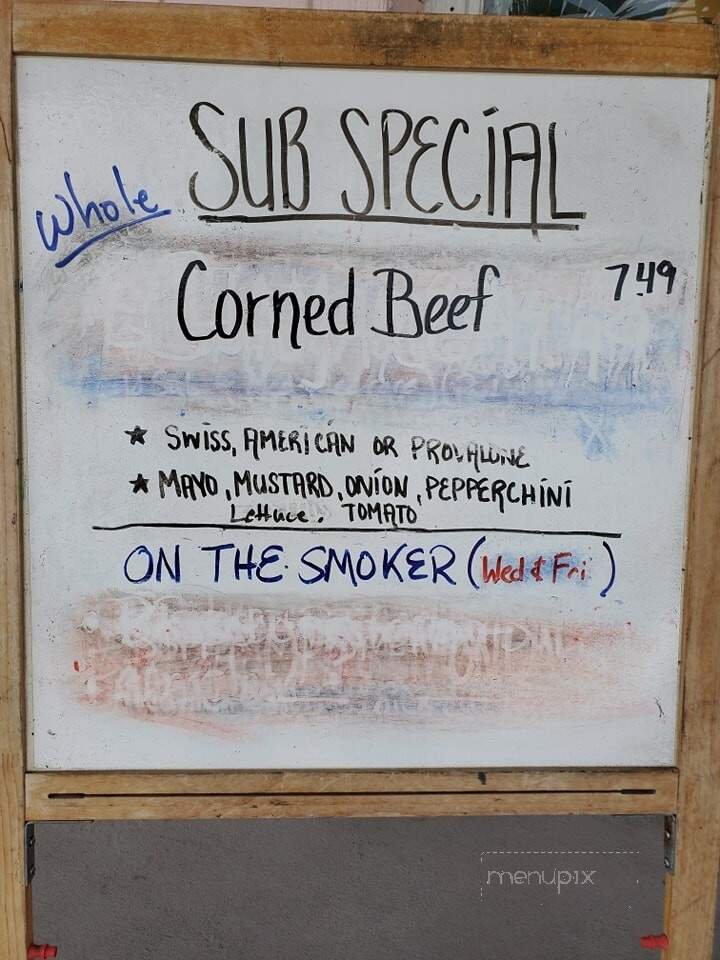 SUB SPECIAL
Whole
Corned Beef 7.49
★ SWISS, AMERICAN OR PROVALONE
★ MAYO, MUSTARD, ONION, PEPPERCHINI
Lettuce, TOMATO
ON THE SMOKER (Wed & Fri)
menupix